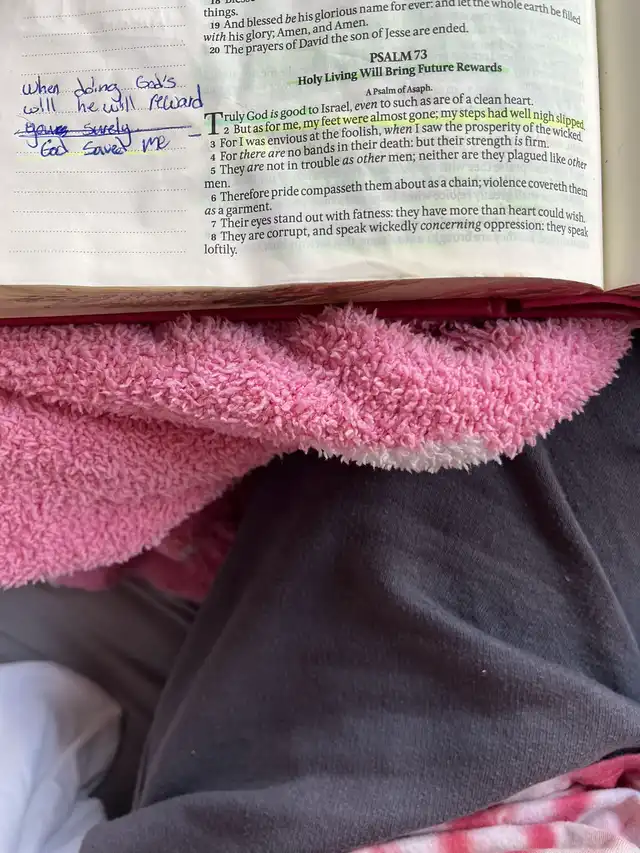 things.
19 And blessed be his glorious name for ever: and let the whole earth be filled
with his glory; Amen, and Amen.
20 The prayers of David the son of Jesse are ended.
PSALM 73
Holy Living Will Bring Future Rewards
A Psalm of Asaph.
Truly God is good to Israel, even to such as are of a clean heart.
2 But as for me, my feet were almost gone; my steps had well nigh slipped.
3 For I was envious at the foolish, when I saw the prosperity of the wicked.
4 For there are no bands in their death: but their strength is firm.
5 They are not in trouble as other men; neither are they plagued like other
men.
6 Therefore pride compasseth them about as a chain; violence covereth them
as a garment.
7 Their eyes stand out with fatness: they have more than heart could wish.
8 They are corrupt, and speak wickedly concerning oppression: they speak
loftily.
when doing God's
will he will reward
surely
God saved me